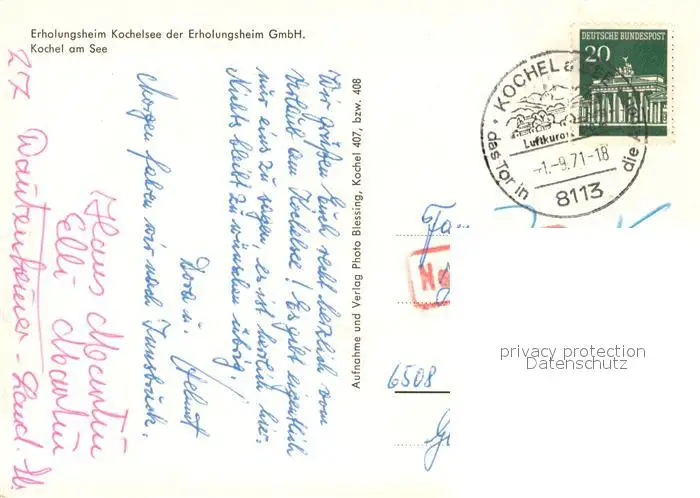 Erholungsheim Kochelsee der Erholungsheim GmbH.
Kochel am See
Wir grüßen Euch recht herzlich vom
Urlaub am Kochelsee! Es gibt eigentlich
nur eins zu sagen, es ist herrlich hier.
Nichts bleibt zu wünschen übrig.
Dora u. Helmut
Morgen fahren wir nach Innsbruck.
Hans Martin
Elli Martin
27
Aufnahme und Verlag Photo Blessing, Kochel 407, bzw. 408
DEUTSCHE BUNDESPOST
20
KOCHEL a.
Luftkurort
-1.-9.71-18
das Tor in die
8113
6508
privacy protection
Datenschutz